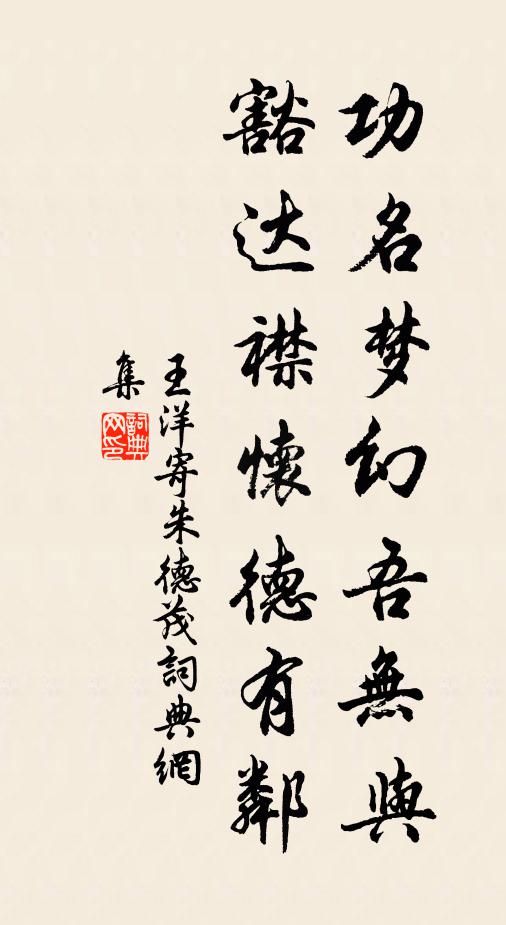 功名梦幻吾無與
豁达襟懷德有鄰
王洋寄朱德茂詞典網
集
詞典网印